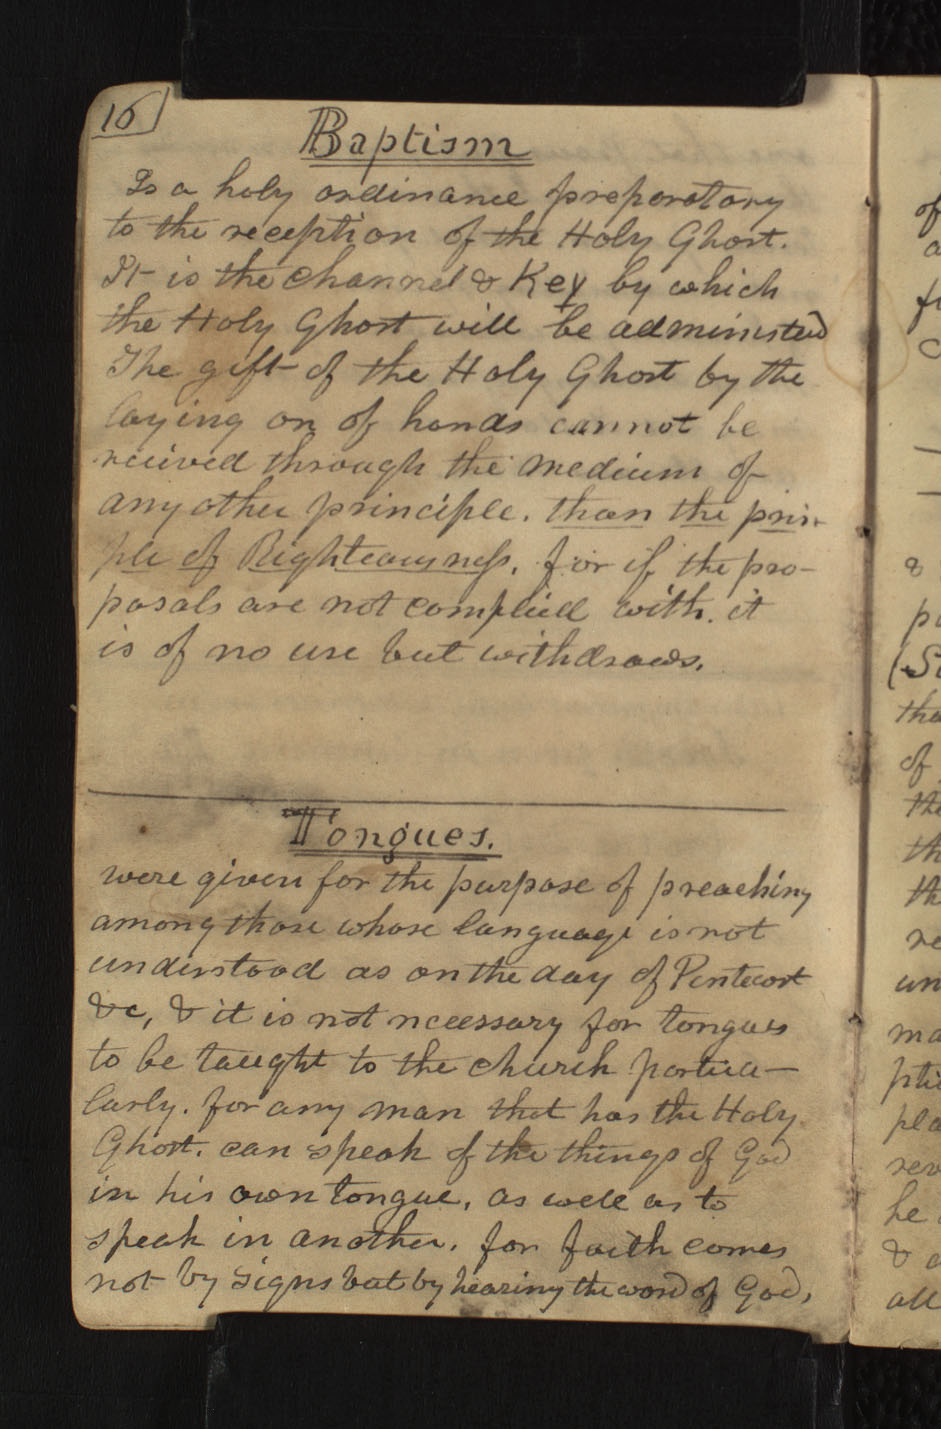 16
Baptism
Is a holy ordinance preparatory
to the reception of the Holy Ghost.
It is the channel & Key by which
the Holy Ghost will be administed
The gift of the Holy Ghost by the
laying on of hands cannot be
recieved through the medium of
any other principle. than the prin-
ple of Righteousness, for if the pro-
posals are not complied with, it
is of no use but withdraws.
Tongues.
were given for the purpose of preaching
among those whose language is not
understood as on the day of Pentecost
&c, & it is not necessary for tongues
to be taught to the church particu-
larly. for any man that has the Holy
Ghost. can speak of the things of God
in his own tongue, as well as to
speak in another. for faith comes
not by signs but by hearing the word of God,
of
&
(St
tha
of
the
th
the
re
un
ma
ptio
pla
rev
he
&
all